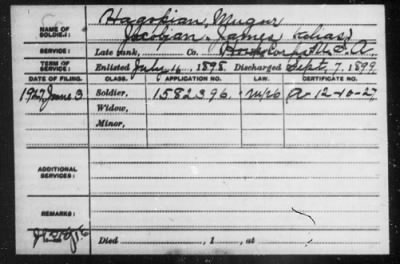 NAME OF SOLDIER: Hagopian, Mugur
Morgan, James (alias)
SERVICE: Late rank, Co. Hosp Corps U.S.A.
TERM OF SERVICE: Enlisted July 1898 Discharged Sept, 7. 1899
DATE OF FILING. CLASS. APPLICATION NO. LAW. CERTIFICATE NO.
1927 June 3. Soldier, 1582396 A-12-10-27
Widow,
Minor,
ADDITIONAL SERVICES:
REMARKS:
Died , 1 , at